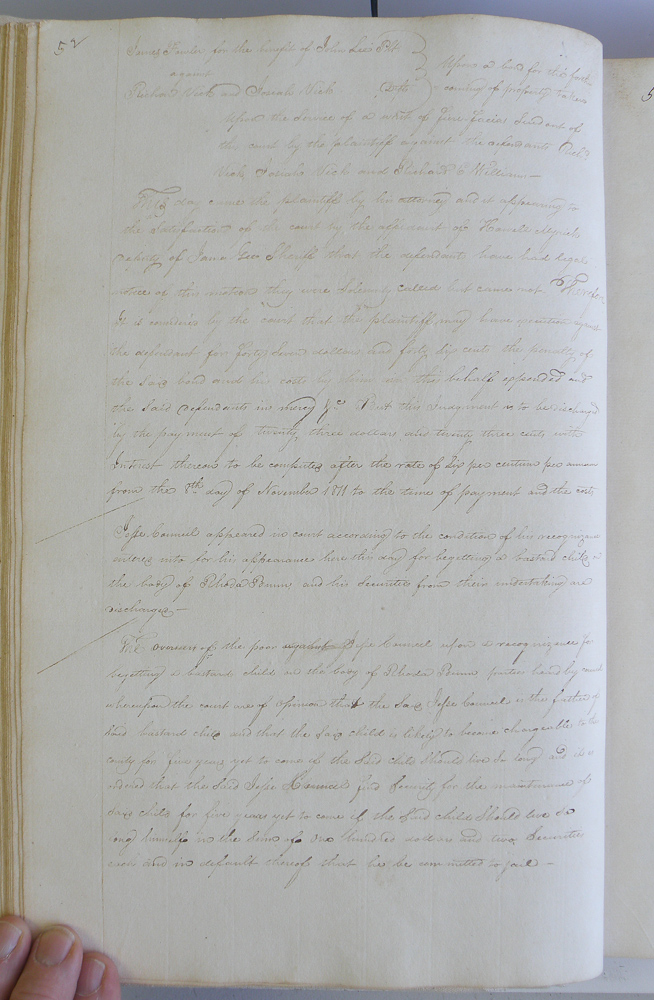 52
James Fowler for the benefit of John Lee Plt
against
Upon a bond for the forth
Richard Vick and Josiah Vick Defts
coming of property taken
upon the service of a writ of fieri facias sued out of
this court by the plaintiff against the defendants Richd
Vick Josiah Vick and William
This day came the plaintiff by his attorney and it appearing to
the satisfaction of the court by the affidavit of
deputy of James Gee Sheriff that the defendant have had legal
notice of this motion they were solemnly called but came not Therefore
It is considered by the court that the plaintiff may have execution against
the defendant for forty seven dollars and forty six cents the penalty of
the said bond and his costs by him in this behalf expended and
the said defendants in mercy &c But this Judgment is to be discharged
by the payment of twenty three dollars and twenty three cents with
Interest thereon to be computed after the rate of six per centum per annum
from the 8th day of November 1811 to the time of payment and the costs
Jesse Council appeared in court according to the condition of his recognizance
entered into for his appearance here this day for begetting a bastard child on
the body of Rhoda and his securities from their undertaking are
discharged —
The overseers of the poor against Jesse Council upon a recognizance for
begetting a bastard child on the body of Rhoda parties heard by
whereupon the court are of opinion that the said Jesse Council is the father of
said bastard child and that the said child is likely to become chargeable to the
county for five years yet to come if the said child should live so long and it is
ordered that the said Jesse Council find security for the maintenance of
said child for five years yet to come if the said child should live so
long himself in the sum of one hundred dollars and two securities
each and in default thereof that he be committed to goal —